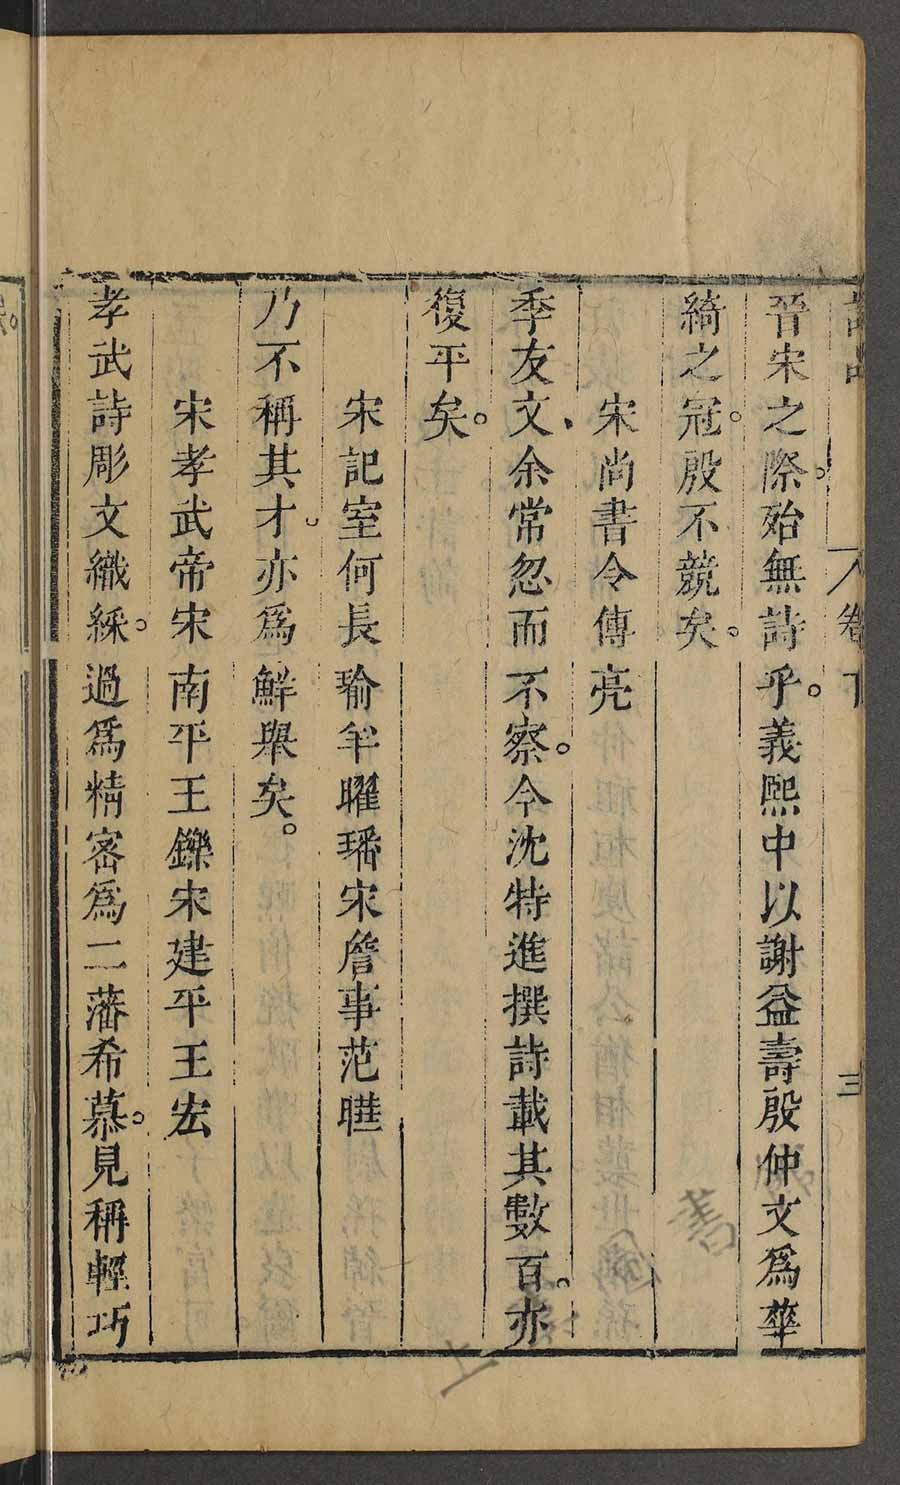 詩品 卷下 三
晉宋之際。殆無詩乎。義熙中以謝益壽殷仲文爲華
綺之冠。殷不競矣。
宋尚書令傅亮
季友文、余常忽而不察。今沈特進撰詩載其數百。亦
復平矣。
宋記室何長瑜羊曜璠宋詹事范曄
乃不稱其才。亦爲鮮舉矣。
宋孝武帝宋南平王鑠宋建平王宏
孝武詩彫文織綵。過爲精密爲二藩希慕。見稱輕巧